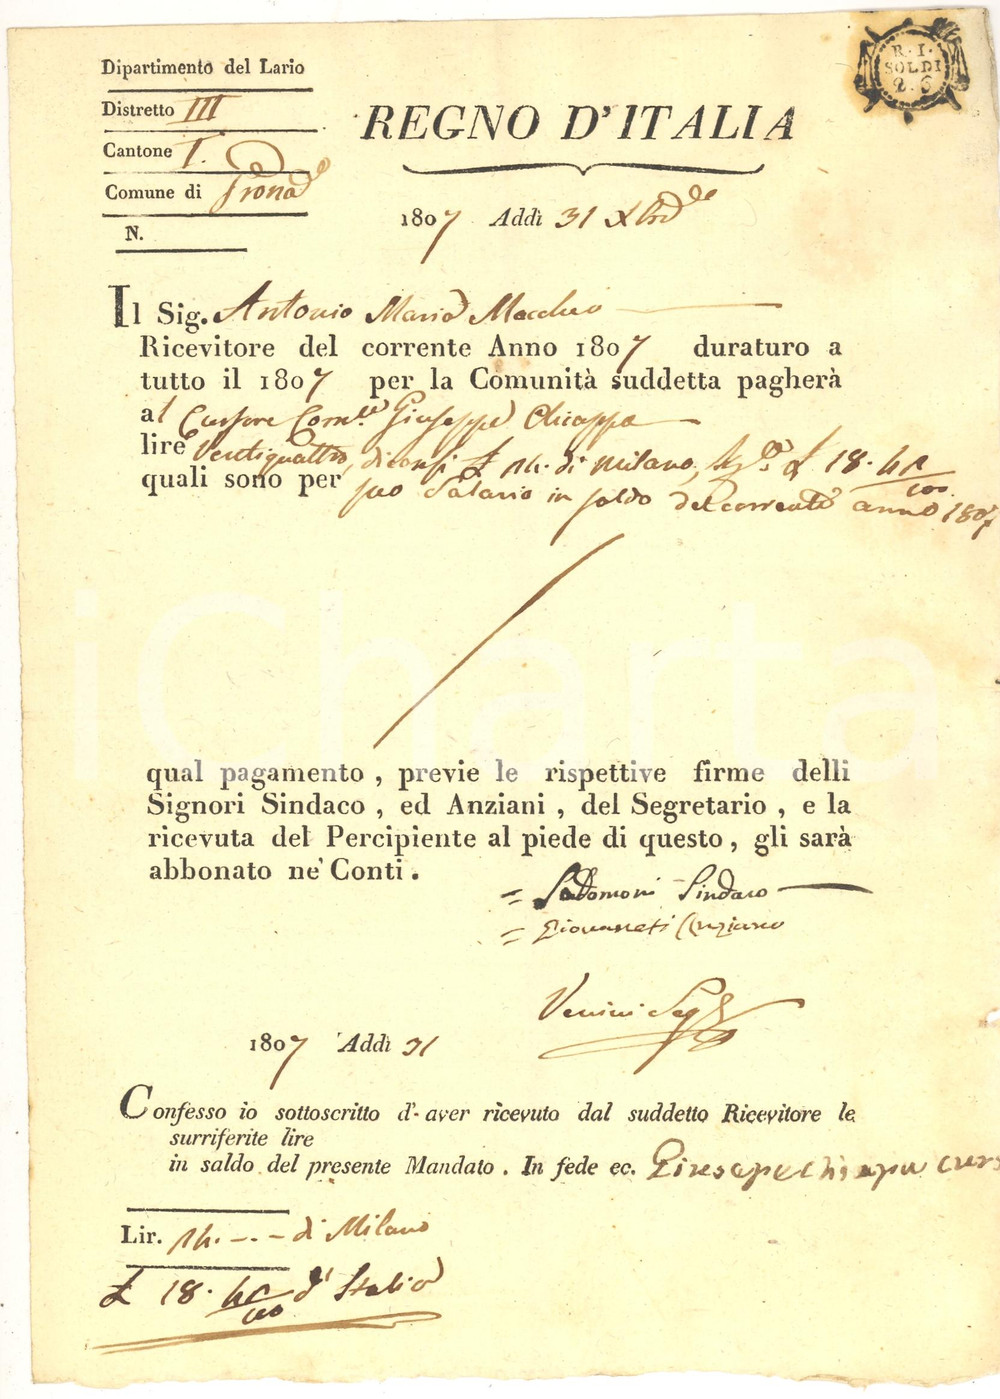 Dipartimento del Lario
Distretto III
Cantone I.
Comune di
N.
R. I.
SOLDI
2. 6
REGNO D'ITALIA
1807 Addì 31 Xbre
Il Sig. Antonio Maria
Ricevitore del corrente Anno 1807 duraturo a
tutto il 1807 per la Comunità suddetta pagherà
al Cursore Com.le Giuseppe Chiappa
lire Ventiquattro, diconsi £ 24. di Milano, £ 18. 42/100
quali sono per suo Salario in saldo del corrente anno 1807
iCharta
qual pagamento, previe le rispettive firme delli
Signori Sindaco, ed Anziani, del Segretario, e la
ricevuta del Percipiente al piede di questo, gli sarà
abbonato ne' Conti.
= Salomoni Sindaco
= Giovaneti Anziano
Venini Seg
1807 Addì 31
Confesso io sottoscritto d'aver ricevuto dal suddetto Ricevitore le
surriferite lire
in saldo del presente Mandato. In fede ec. Giuseppe Chiapa curs
Lir. 24. -.- di Milano
£ 18. 42/100 d'Italia